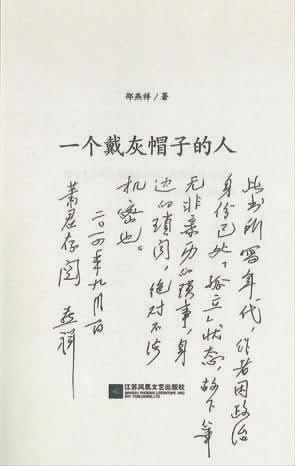 邵燕祥/著
一个戴灰帽子的人
此书所写年代，作者因政治
身份已处于孤立状态，故下笔
无非亲历的琐事，身
边的琐闻，绝对不涉
机密也。
二〇一四年九月日
萧君存阅 燕祥
江苏凤凰文艺出版社
JIANGSU PHOENIX LITERATURE AND
ART PUBLISHING, LTD